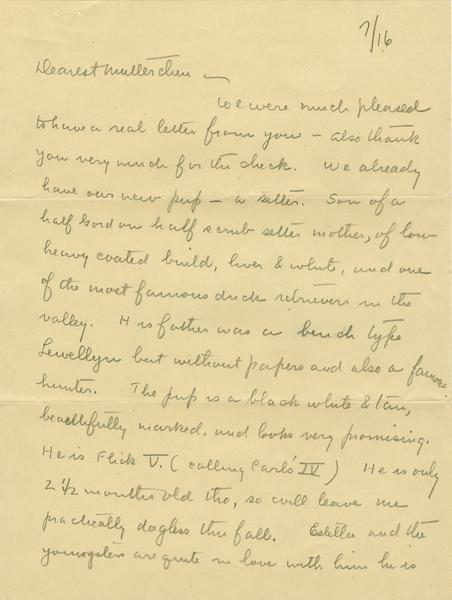 7/16
Dearest Mutterchen —
We were much pleased
to have a real letter from you – also thank
you very much for the check. We already
have our new pup – a setter. Son of a
half Gordon half scrub setter mother, of low
heavy coated build, liver & white, and one
of the most famous duck retrievers in the
valley. His father was a bench type
Lewellyn but without papers and also a famous
hunter. The pup is a black white & tan,
beautifully marked, and looks very promising.
He is Flick V. (calling Carl's IV) He is only
2 1/2 months old tho, so will leave me
practically dogless this fall. Estella and the
youngsters are quite in love with him he is